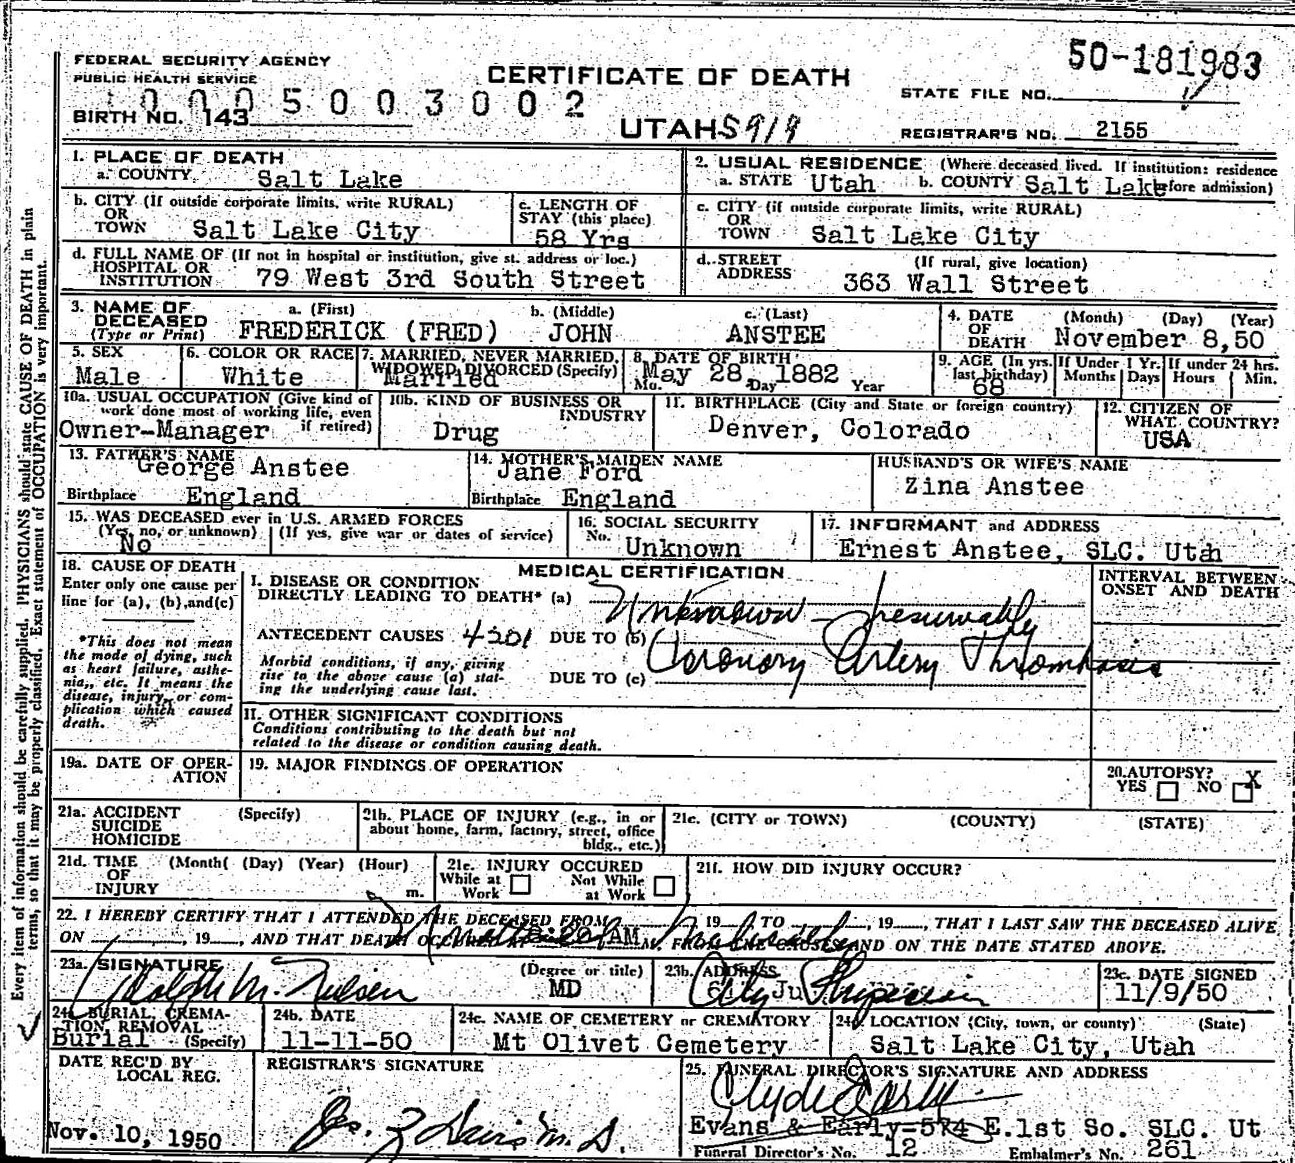 50-181983
FEDERAL SECURITY AGENCY
PUBLIC HEALTH SERVICE
CERTIFICATE OF DEATH
STATE FILE NO.
0005003002
BIRTH NO. 143
UTAH-S919
REGISTRAR'S NO. 2155
1. PLACE OF DEATH
a. COUNTY Salt Lake
2. USUAL RESIDENCE (Where deceased lived. If institution: residence
a. STATE Utah b. COUNTY Salt Lake before admission)
b. CITY (If outside corporate limits, write RURAL)
OR
TOWN Salt Lake City
c. LENGTH OF
STAY (this place)
58 Yrs
c. CITY (if outside corporate limits, write RURAL)
OR
TOWN Salt Lake City
d. FULL NAME OF (If not in hospital or institution, give st. address or loc.)
HOSPITAL OR
INSTITUTION 79 West 3rd South Street
d. STREET (If rural, give location)
ADDRESS 363 Wall Street
3. NAME OF a. (First) b. (Middle) c. (Last)
DECEASED
(Type or Print) FREDERICK (FRED) JOHN ANSTEE
4. DATE (Month) (Day) (Year)
OF
DEATH November 8,50
5. SEX
Male
6. COLOR OR RACE
White
7. MARRIED, NEVER MARRIED,
WIDOWED, DIVORCED (Specify)
Married
8. DATE OF BIRTH
May 28, 1882
Mo. Day Year
9. AGE (In yrs. last birthday)
68
If Under 1 Yr.
Months Days
If under 24 hrs.
Hours Min.
10a. USUAL OCCUPATION (Give kind of
work done most of working life, even
if retired)
Owner-Manager
10b. KIND OF BUSINESS OR
INDUSTRY
Drug
11. BIRTHPLACE (City and State or foreign country)
Denver, Colorado
12. CITIZEN OF
WHAT COUNTRY?
USA
13. FATHER'S NAME
George Anstee
Birthplace England
14. MOTHER'S MAIDEN NAME
Jane Ford
Birthplace England
HUSBAND'S OR WIFE'S NAME
Zina Anstee
15. WAS DECEASED ever in U.S. ARMED FORCES
(Yes, no, or unknown) (If yes, give war or dates of service)
No
16. SOCIAL SECURITY
No. Unknown
17. INFORMANT and ADDRESS
Ernest Anstee, SLC. Utah
18. CAUSE OF DEATH
Enter only one cause per
line for (a), (b), and (c)
*This does not mean
the mode of dying, such
as heart failure, asthe-
nia, etc. It means the
disease, injury, or com-
plication which caused
death.
MEDICAL CERTIFICATION
I. DISEASE OR CONDITION
DIRECTLY LEADING TO DEATH* (a) Unknown - Presumably
ANTECEDENT CAUSES 4201 DUE TO (b) Coronary Artery Thrombosis
Morbid conditions, if any, giving
rise to the above cause (a) stat-
ing the underlying cause last.
DUE TO (c)
II. OTHER SIGNIFICANT CONDITIONS
Conditions contributing to the death but not
related to the disease or condition causing death.
INTERVAL BETWEEN
ONSET AND DEATH
19a. DATE OF OPER-
ATION
19. MAJOR FINDINGS OF OPERATION
20. AUTOPSY?
YES NO X
21a. ACCIDENT (Specify)
SUICIDE
HOMICIDE
21b. PLACE OF INJURY (e.g., in or
about home, farm, factory, street, office
bldg., etc.)
21c. (CITY or TOWN) (COUNTY) (STATE)
21d. TIME (Month( (Day) (Year) (Hour)
OF
INJURY m.
21e. INJURY OCCURED
While at Work Not While at Work
21f. HOW DID INJURY OCCUR?
22. I HEREBY CERTIFY THAT I ATTENDED THE DECEASED FROM , 19 TO , 19 , THAT I LAST SAW THE DECEASED ALIVE
ON , 19 , AND THAT DEATH OCCURRED AM FROM THE CAUSES AND ON THE DATE STATED ABOVE.
23a. SIGNATURE (Degree or title)
M. Nielsen MD
23b. ADDRESS
City Physician
23c. DATE SIGNED
11/9/50
24a. BURIAL, CREMA-
TION, REMOVAL
Burial (Specify)
24b. DATE
11-11-50
24c. NAME OF CEMETERY or CREMATORY
Mt Olivet Cemetery
24d. LOCATION (City, town, or county) (State)
Salt Lake City, Utah
DATE REC'D BY
LOCAL REG.
Nov. 10, 1950
REGISTRAR'S SIGNATURE
Jas. Z Davis M.D.
25. FUNERAL DIRECTOR'S SIGNATURE AND ADDRESS
Clyde Early
Evans & Early-574 E.1st So. SLC. Ut
Funeral Director's No. 12 Embalmer's No. 261
Every item of information should be carefully supplied. PHYSICIANS should state CAUSE OF DEATH in plain
terms, so that it may be properly classified. Exact statement of OCCUPATION is very important.